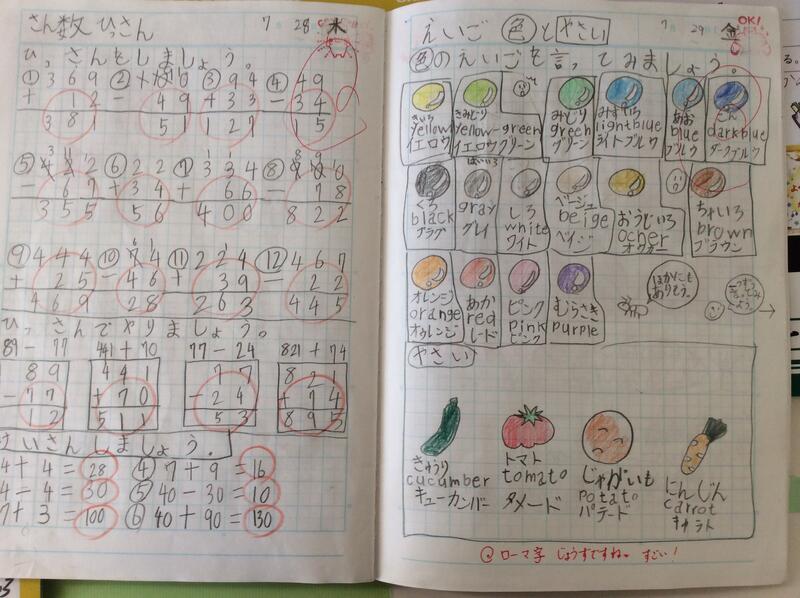 さん数 ひっさん 7 28 木
ひっさんをしましょう。
① 369 ② ③ 94 ④ 49
+ 12 - 49 + 33 - 34
381 51 127 15
⑤ 422 ⑥ 22 ⑦ 334 ⑧ 900
- 67 + 34 + 66 - 78
355 56 400 822
⑨ 444 ⑩ 74 ⑪ 224 ⑫ 467
+ 25 - 46 + 39 - 22
469 28 263 445
ひっさんでやりましょう。
89 - 77 441 + 70 77 - 24 821 + 74
89 441 77 821
- 77 + 70 - 24 + 74
12 511 53 895
けいさんしましょう。
4 + 4 = 28 ④ 7 + 9 = 16
4 - 4 = 30 ⑤ 40 - 30 = 10
7 + 3 = 100 ⑥ 40 + 90 = 130
えいご 色 と やさい 7 29 金 OK!
色のえいごを言ってみましょう。
きいろ きみどり みどり みずいろ あお こん
yellow yellow-green green lightblue blue darkblue
イエロウ イエロウグリーン グリーン ライトブルウ ブルウ ダークブルウ
くろ はいいろ しろ ベージュ おうどいろ ちゃいろ
black gray white beige ocher brown
ブラグ グレイ ワイト ベイジ オウカー ブラウン
オレンジ あか ピンク むらさき
orange red pink purple
オゥレンジ レード ピンク
ほかにもありそう。
やさい
きゅうり トマト じゃがいも にんじん
cucumber tomato potato carrot
キューカンバー タメード パテード キャラト
ローマ字 じょうずですね。 すごい!